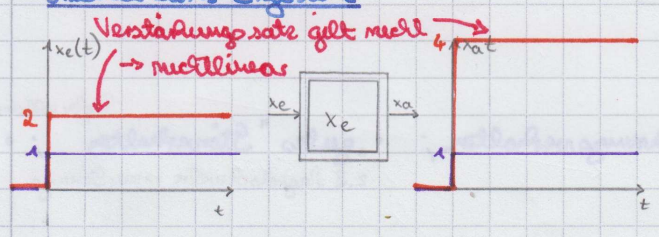 Verstärkungssatz gilt nicht
→ nichtlinear
xe(t)
2
1
t
xe
xe
xa
4
xat
1
t